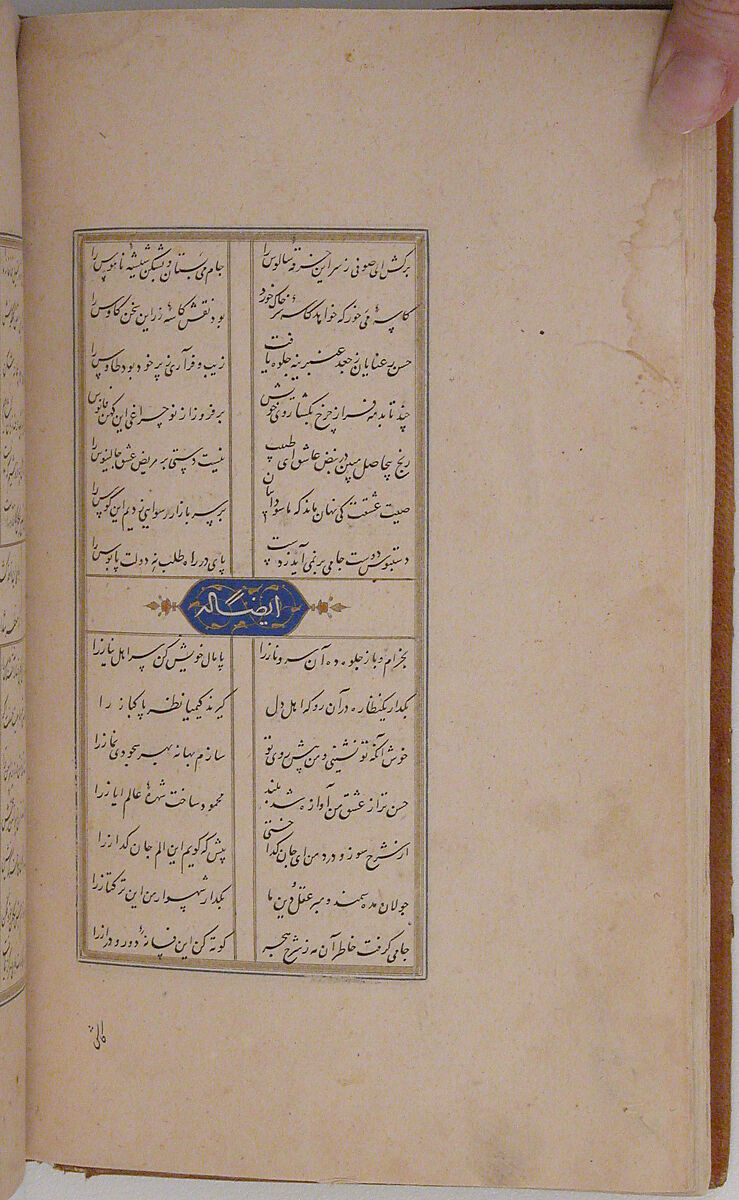 برکش ای صوفی ز سر این خرقهٔ سالوس را جام می بستان و بشکن شیشهٔ ناموس را
کاسهٔ می خور که خواهد کاسهٔ سر خاک خورد بود نقش کاسهٔ زر این سخن کاوس را
حسن رعنایان ز جعد عنبرینه جلوه یافت زیب و فر آری ز پر خود بود طاوس را
چند تابد مه فراز چرخ بگشا روی خویش برفروز از نو چراغی این کهن فانوس را
رنج بیحاصل مبین در نبض عاشق ای طبیب نیست دستی بر مریض عشق جالینوس را
صیت عشقت کی نهان ماند که ما سوداییان بر سر بازار رسوایی زدیم این کوس را
دستبوس دوست جامی بر نمی آید ز دست پای در راه طلب نه دولت پابوس را
ایضا له
بخرام و باز جلوه ده آن سرو ناز را پامال خویش کن سر اهل نیاز را
بگذار یکنظاره در آن رو که اهل دل گیرند کیمیا نظر پاکباز را
خوش آنکه تو نشینی و من پیش روی تو سازم بهانه بهر سجودی نماز را
حسن تو از عشق من آوازه شد بلند محمود ساخت شهرهٔ عالم ایاز را
از شرح سوز و درد من ای جان گداختی پیش که گویم این الم جان گداز را
جولان مده سمند و مبر عقل و دین ما بگذار شهسوار من این ترکتاز را
جامی گرفت خاطر آن مه ز شرح هجر کوته کن این فسانهٔ دور و دراز را